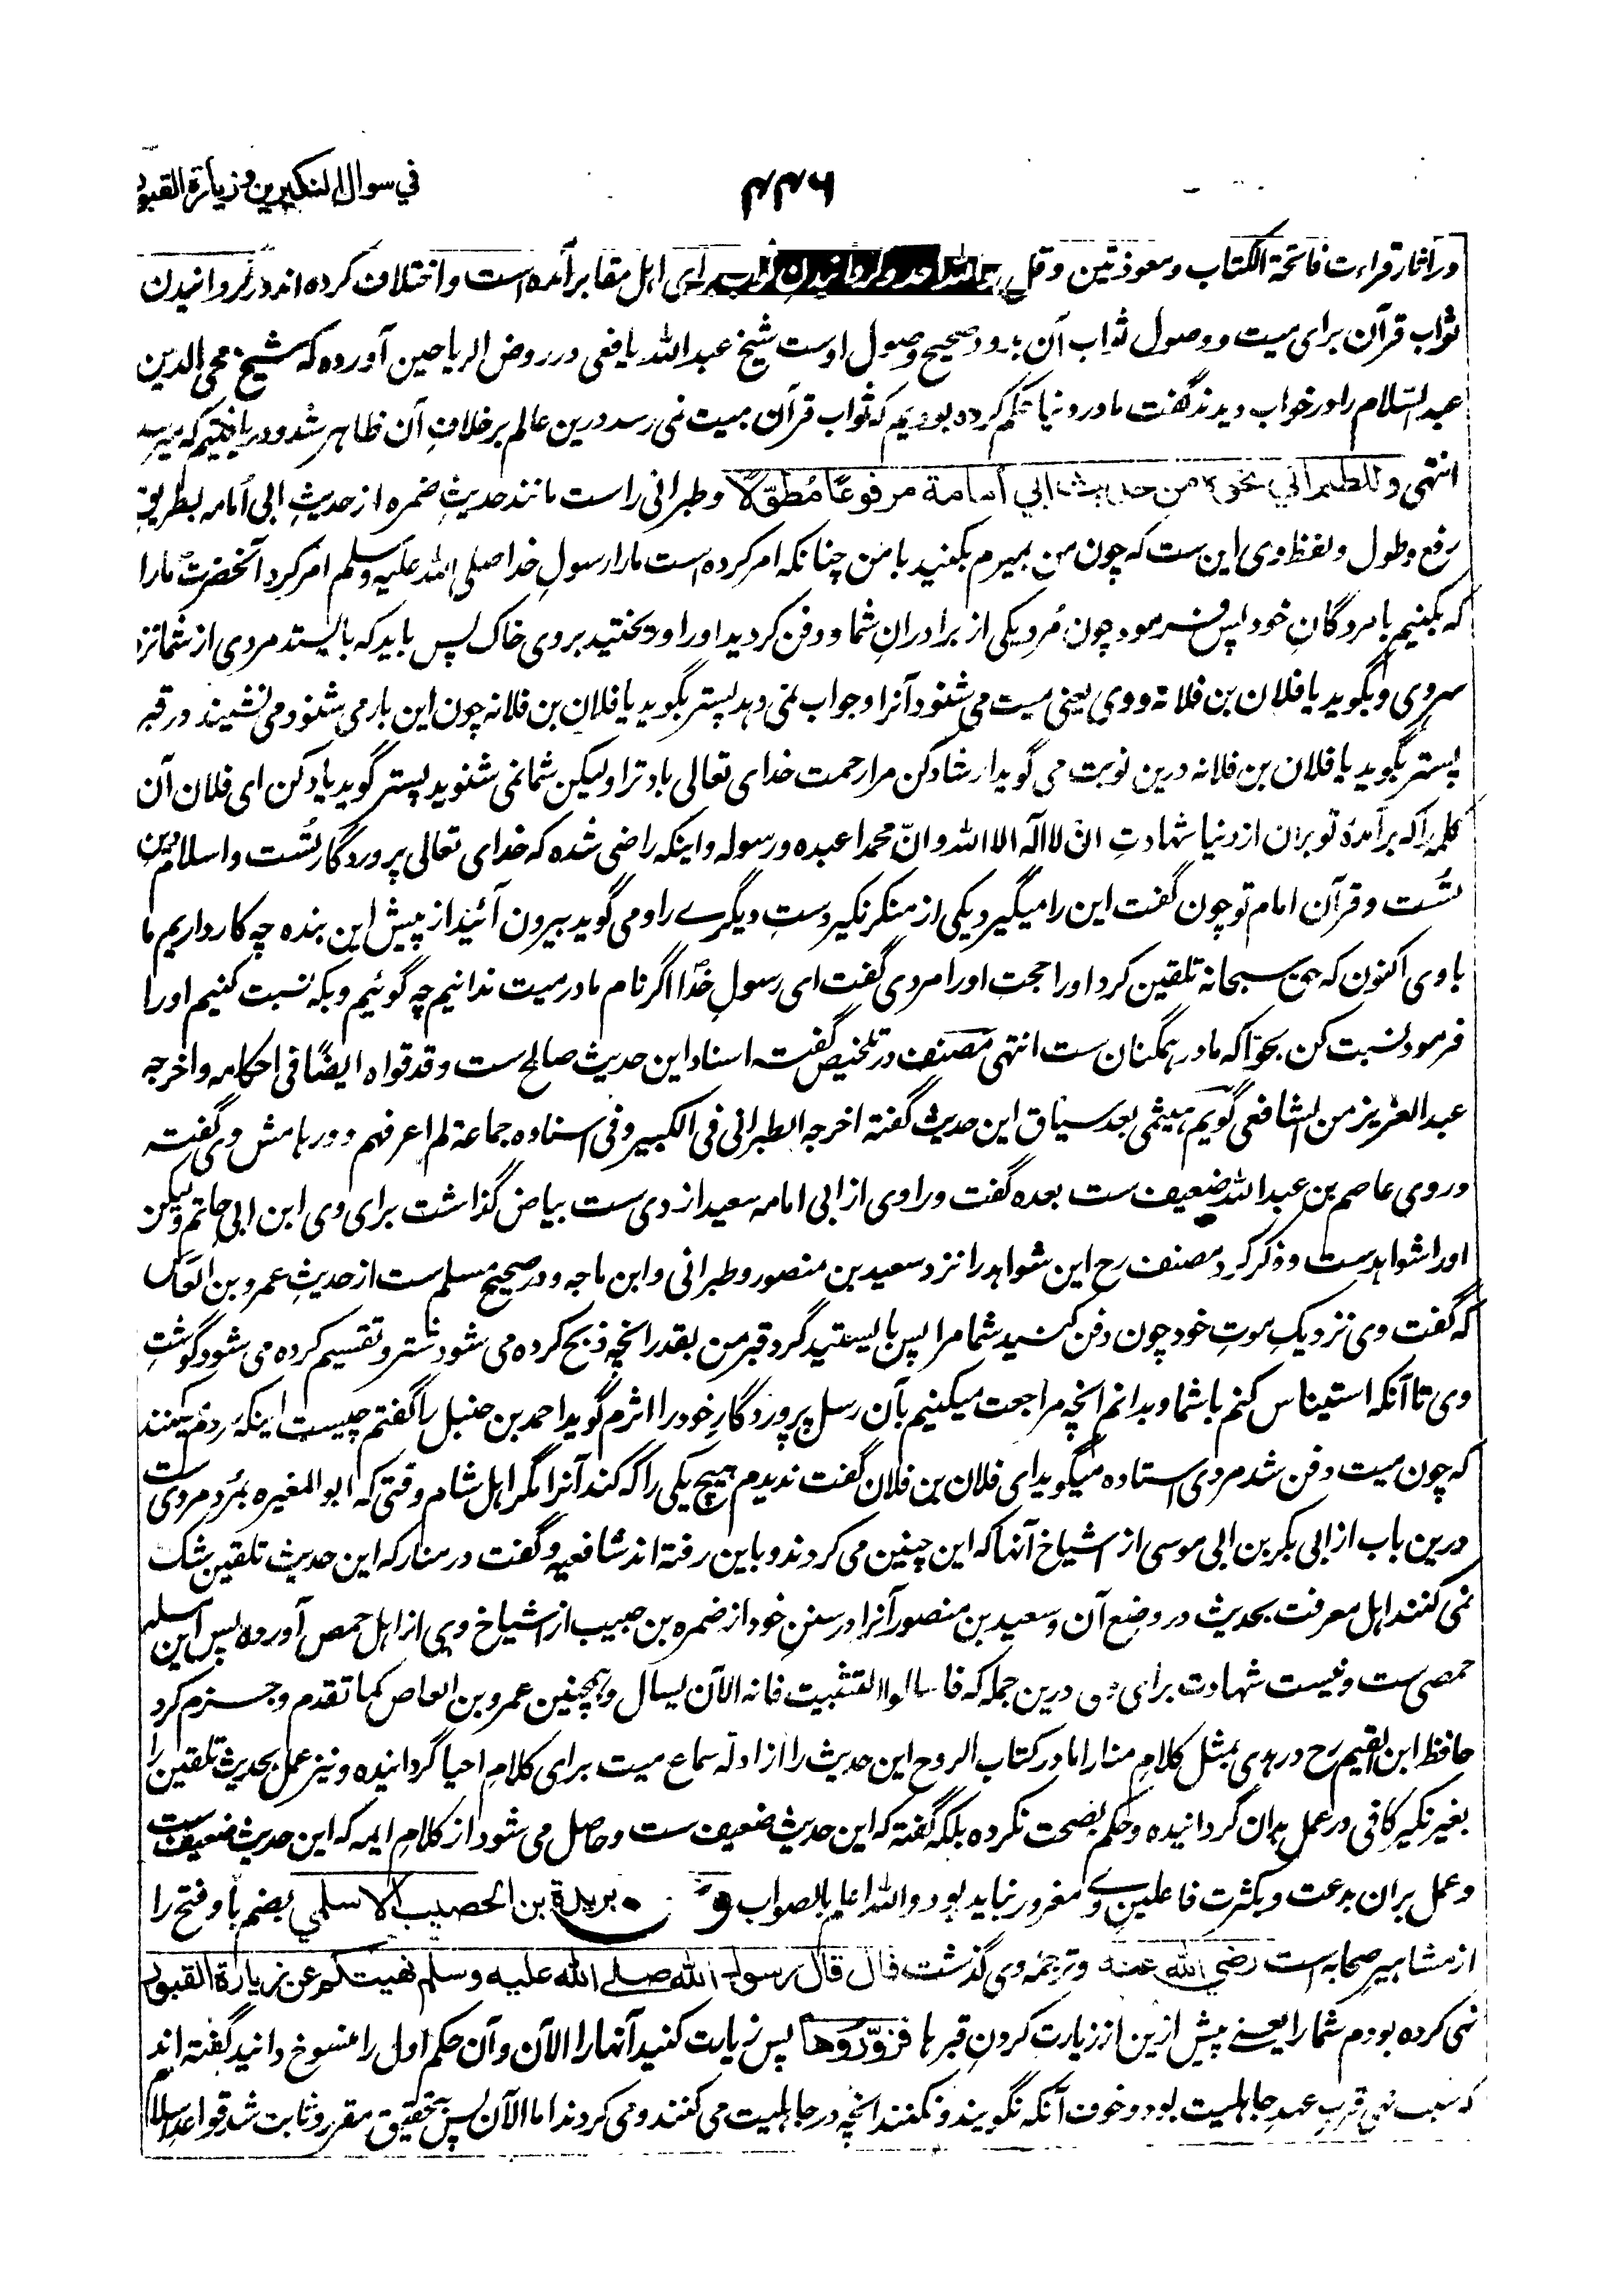 في سوال النكيرين وزيارة القبور
۴۴۶
ودر آثار قراءت فاتحة الكتاب ومعوذتین وقل هو الله احد وگردانیدنِ ثواب برای اہل مقابر آمدہ است واختلاف کردہ اند در گردانیدن
ثواب قرآن برای میت ووصول ثواب آن بدو وصحیح وصول اوست شیخ عبد اللہ یافعی در روض الریاحین آوردہ کہ شیخ محی الدین
عبد السّلام را در خواب دیدند گفت ما در دنیا حکم کردہ بودیم کہ ثواب قرآن بمیت نمی رسد درین عالم برخلافِ آن ظاہر شد ودریافتیم کہ میرسد
انتہی وللطبراني نحوه من حديث ابي أمامة مرفوعًا مُطوّلًا وطبرانی راست مانند حدیثِ ضمرہ از حدیثِ ابی اُمامہ بطریق
رفع وطول ولفظ وی این ست کہ چون من بمیرم بکنید با من چنانکہ امر کردہ است ما را رسولِ خدا صلی اللہ علیہ وسلم امر کرد آنحضرت ما را
کہ بکنیم با مردگانِ خود پس فرمود چون مُرد یکی از برادرانِ شما ودفن کردید او را وریختید بروی خاک پس باید کہ بایستد مردی از شما نزد
سروی وبگوید یا فلان بن فلانہ ووی یعنی میت می شنود آنرا وجواب نمی دہد پستر بگوید یا فلان بن فلانہ چون این بار می شنود می نشیند در قبر
پستر بگوید یا فلان بن فلانہ درین نوبت می گوید ارشاد کن مرا رحمت خدای تعالی باد ترا ولیکن شما نمی شنوید پستر گوید یاد کن ای فلان آن
کلمہ را کہ برآمدۂ تو بران از دنیا شہادتِ ان لا الٓہ الا اللہ وانّ محمدا عبدہ ورسولہ واینکہ راضی شدہ کہ خدای تعالی پروردگار تُست واسلام دین
تُست وقرآن امام تو چون گفت این را میگیرد یکی از منکر نکیر دستِ دیگرے را ومی گوید بیرون آئید از پیش این بندہ چہ کار داریم ما
با وی اکنون کہ حق سبحانہ تلقین کرد او را حجت او را مردی گفت ای رسولِ خدا اگر نام مادر میت ندانیم چہ گوئیم وبکہ نسبت کنیم او را
فرمود نسبت کن بحوّا کہ مادر ہمگنان ست انتہی مصنف در تلخیص گفتہ اسناد این حدیث صالح ست وقد قواہ ایضًا فی احکامہ واخرجہ
عبد العزیز من الشافعی گویم ہیثمی بعد سیاق این حدیث گفتہ اخرجہ الطبرانی فی الکبیر وفی اسنادہ جماعة لم اعرفہم ودر ہامش وی گفتہ
در وی عاصم بن عبد اللہ ضعیف ست بعدہ گفت وراوی از ابی امامہ سعید ازدی ست بیاض گذاشت برای وی ابن ابی حاتم ولیکن
او را شواہد ست وذکر کرد مصنف رح این شواہد را نزد سعید بن منصور وطبرانی وابن ماجہ ودر صحیح مسلم ست از حدیثِ عمرو بن العاص
کہ گفت وی نزدیکِ موتِ خود چون دفن کنید شما مرا پس بایستید گرد قبر من بقدر انچہ ذبح کردہ می شود شتر وتقسیم کردہ می شود گوشتِ
وی تا آنکہ استیناس کنم با شما وبدانم انچہ مراجعت میکنیم بآن رسل پروردگارِ خود را اثرم گوید احمد بن حنبل را گفتم چیست اینکہ مردم میکنند
کہ چون میت دفن شد مردی ستادہ میگوید ای فلان بن فلان گفت ندیدم ہیچ یکی را کہ کند آنرا مگر اہل شام وقتی کہ ابو المغیرہ بمُرد مروی ست
درین باب از ابی بکر بن ابی موسی از اشیاخ آنہا کہ این چنین می کردند وباین رفتہ اند شافعیہ وگفت در منار کہ این حدیث تلقین شک
نمی کنند اہل معرفت بحدیث در وضع آن وسعید بن منصور آنرا در سننِ خود از ضمرہ بن حبیب از اشیاخ وی از اہل حمص آوردہ پس این مسئلہ
حمصی ست ونیست شہادت برای وی درین جملہ کہ فاسالوا التثبیت فانہ الآن یسال وہمچنین عمرو بن العاص کما تقدم وجزم کرد
حافظ ابن القیم رح در ہدی بمثل کلامِ منار اما در کتاب الروح این حدیث را از ادلّہ سماع میت برای کلامِ احیا گردانیدہ ونیز عمل بحدیث تلقین را
بغیر نکیر کافی در عمل بدان گردانیدہ وحکم بصحت نکردہ بلکہ گفتہ کہ این حدیث ضعیف ست وحاصل می شود از کلامِ ایمہ کہ این حدیث ضعیف ست
وعمل بران بدعت وبکثرت فاعلینِ وے مغرور نباید بود واللہ اعلم بالصواب وعن بريدة بن الحصيب الاسلمي بضم با وفتح را
از مشاہیر صحابہ است رضي الله عنه وترجمہ وی گذشت قال قال رسول الله صلے الله عليه وسلم نهيتكم عن زيارة القبور
نہی کردہ بودم شما را یعنے پیش ازین از زیارت کردنِ قبرہا فزوروها پس زیارت کنید آنہا را الآن وآن حکم اول را منسوخ دانید گفتہ اند
کہ سبب نہی قربِ عہدِ جاہلیت بود وخوف آنکہ نگویند ونکنند انچہ در جاہلیت می کنند ومی کردند اما الآن پس بتحقیق مقرر وثابت شد قواعد اسلام